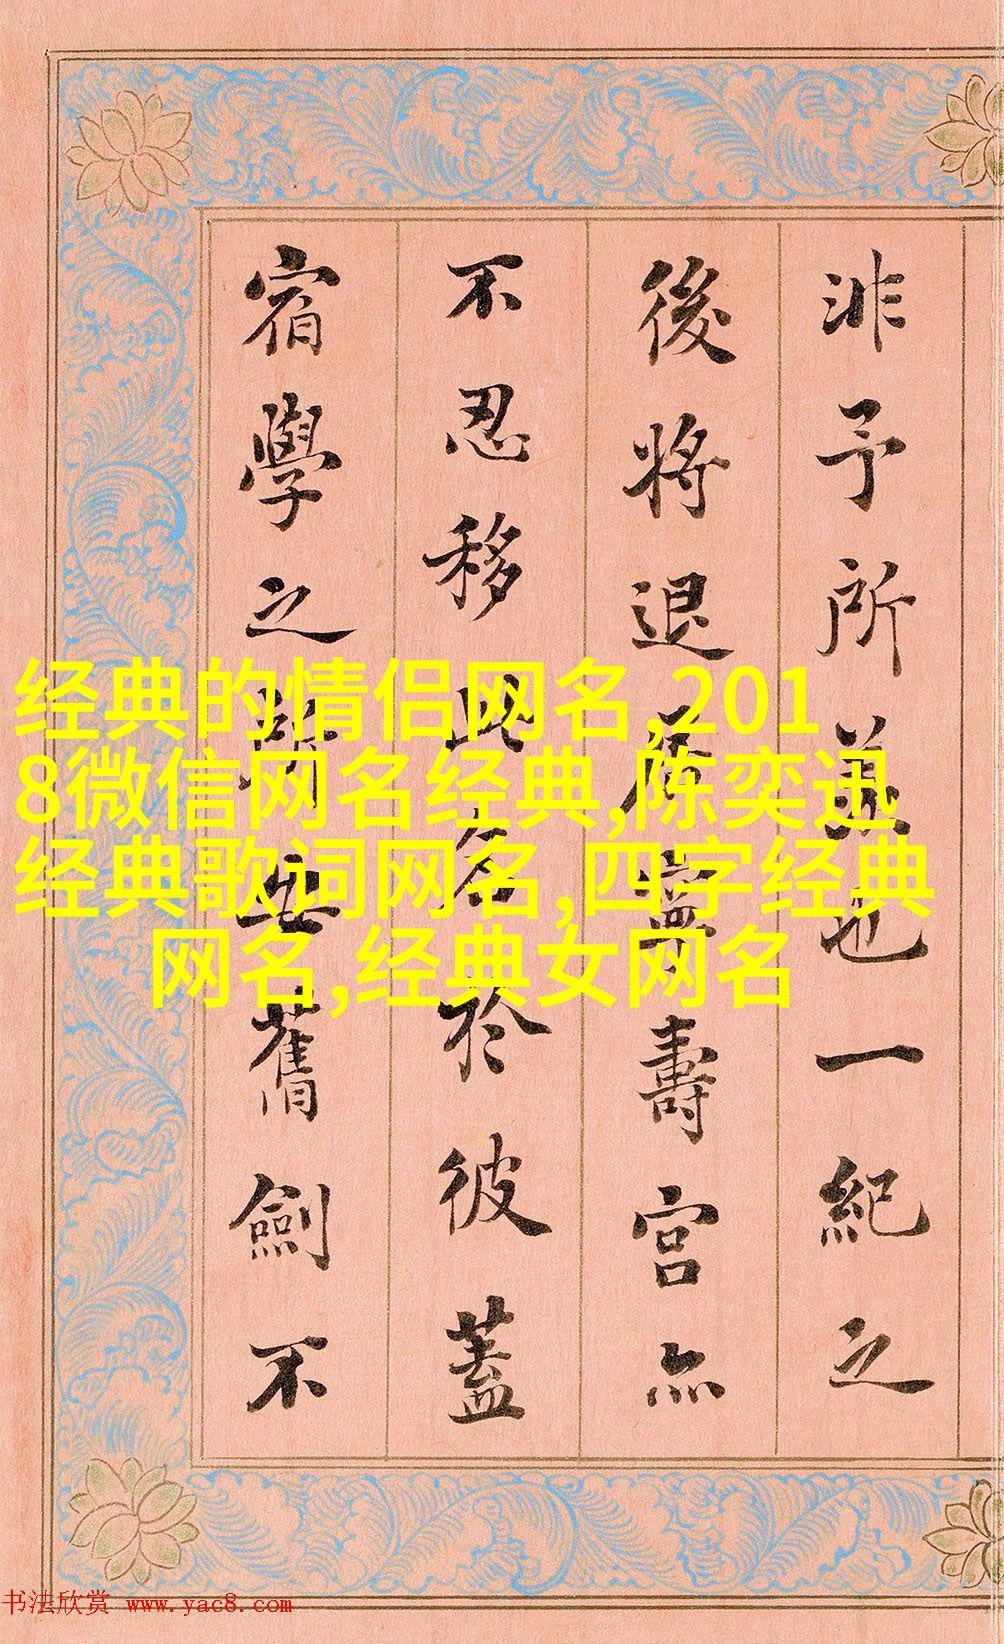 非予所也一紀之
後將退居寧壽宮亦
不忍移此名於彼蓋
宿學之所舊劍不
经典的情侣网名,201
8微信网名经典,陈奕迅
经典歌词网名,四字经典
网名,经典女网名
书法欣赏 www.yac8.com